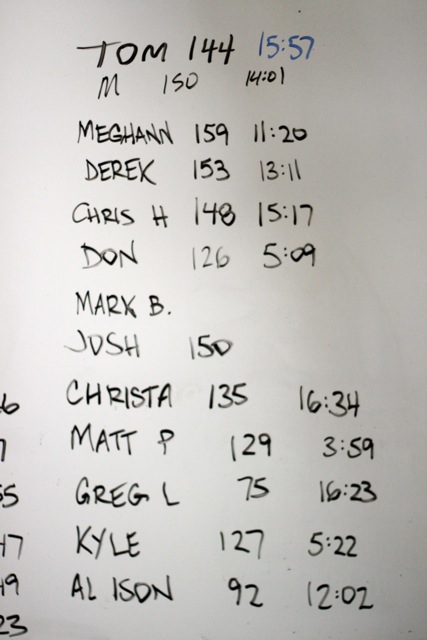 TOM 144 15:57
M 150 14:01
MEGHANN 159 11:20
DEREK 153 13:11
CHRIS H 148 15:17
DON 126 5:09
MARK B.
JOSH 150
CHRISTA 135 16:34
MATT P 129 3:59
GREG L 75 16:23
KYLE 127 5:22
ALISON 92 12:02